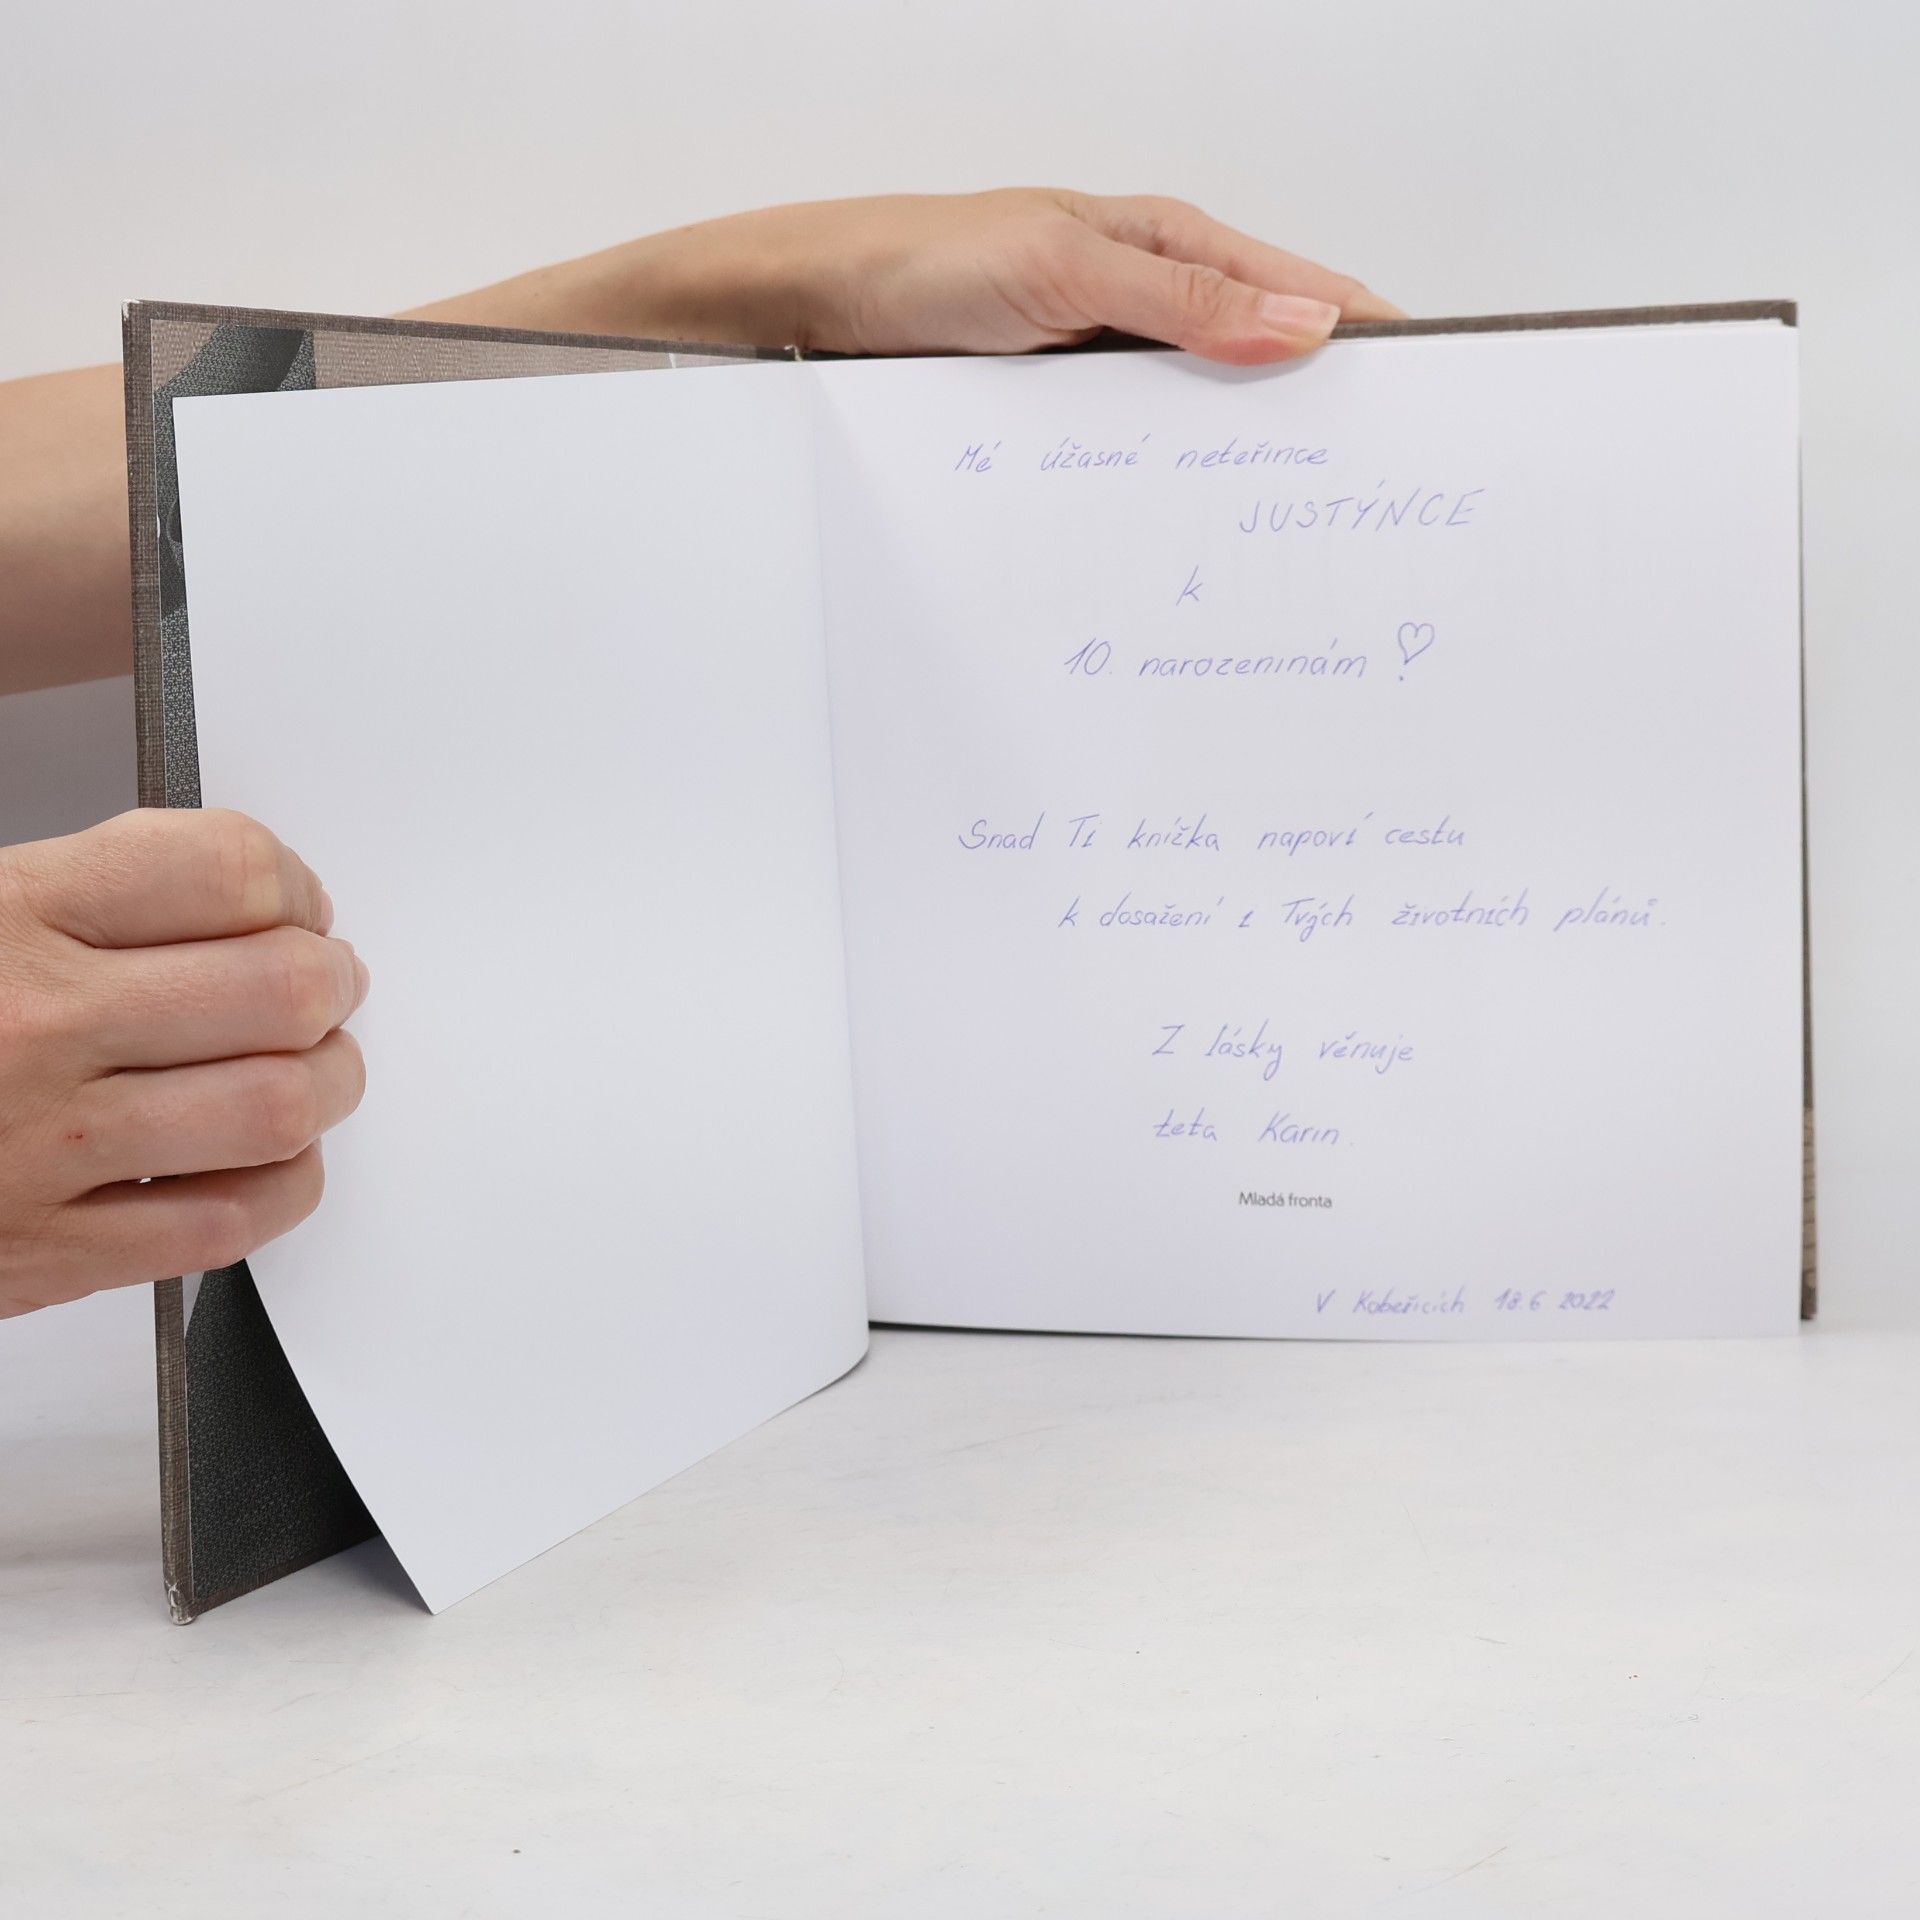 Mé úžasné neteřince
JUSTÝNCE
k
10. narozeninám ♡
Snad Ti knížka napoví cestu
k dosažení i Tvých životních plánů.
Z lásky věnuje
teta Karin.
Mladá fronta
V Kobeřicích 18.6 2022